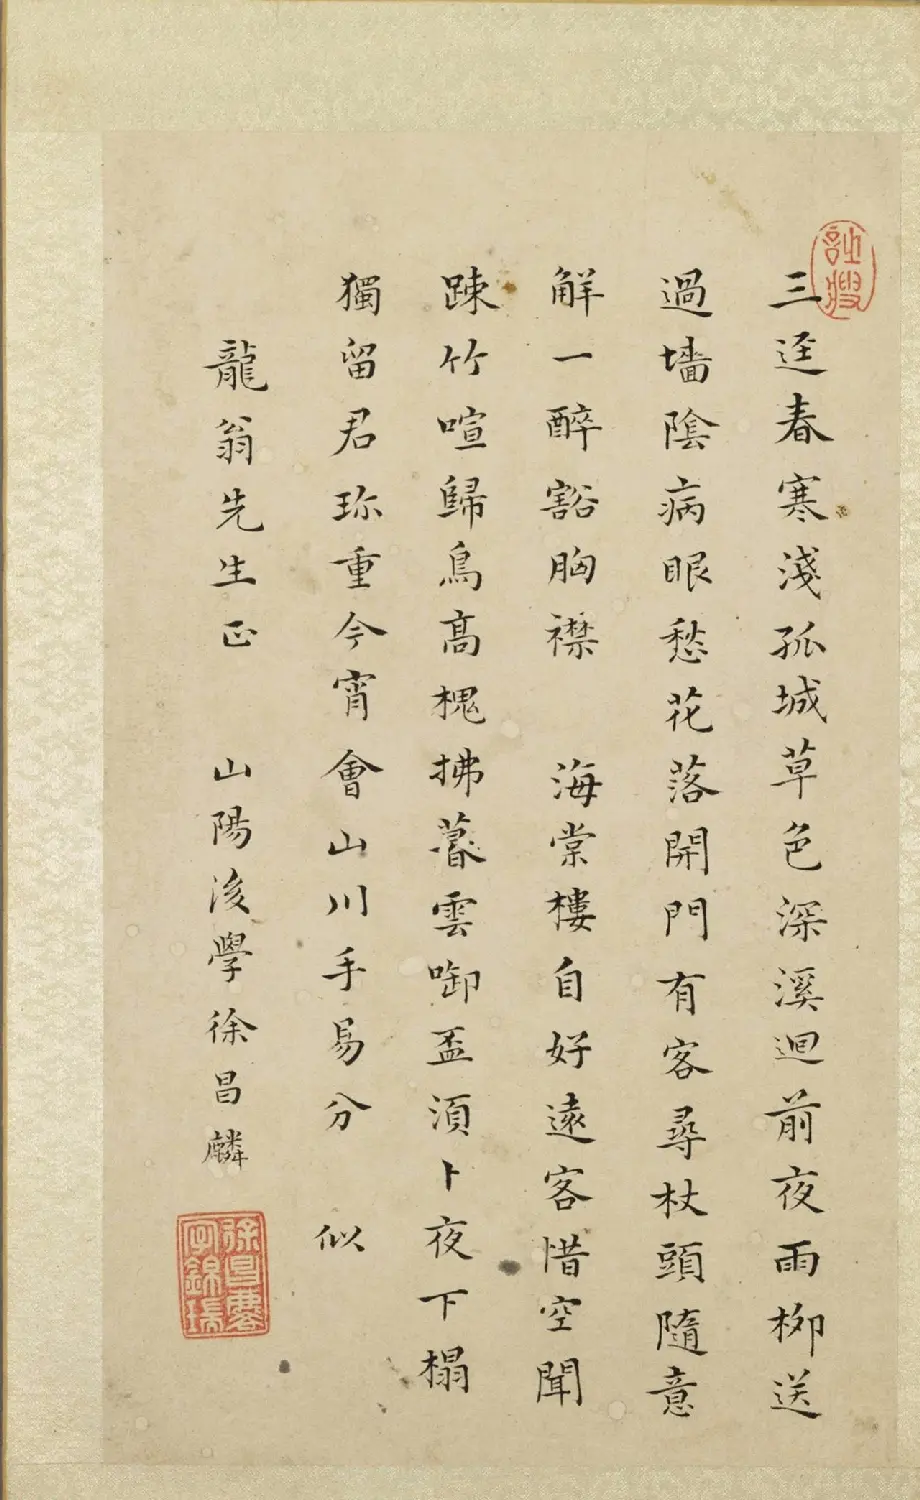 三逕春寒淺孤城草色深溪迴前夜雨柳送
過墻陰病眼愁花落開門有客尋杖頭隨意
解一醉豁胸襟　海棠樓自好遠客惜空聞
踈竹喧歸鳥高槐拂暮雲啣盃須卜夜下榻
獨留君珎重今宵會山川手易分　似
龍翁先生正　山陽後學徐昌麟